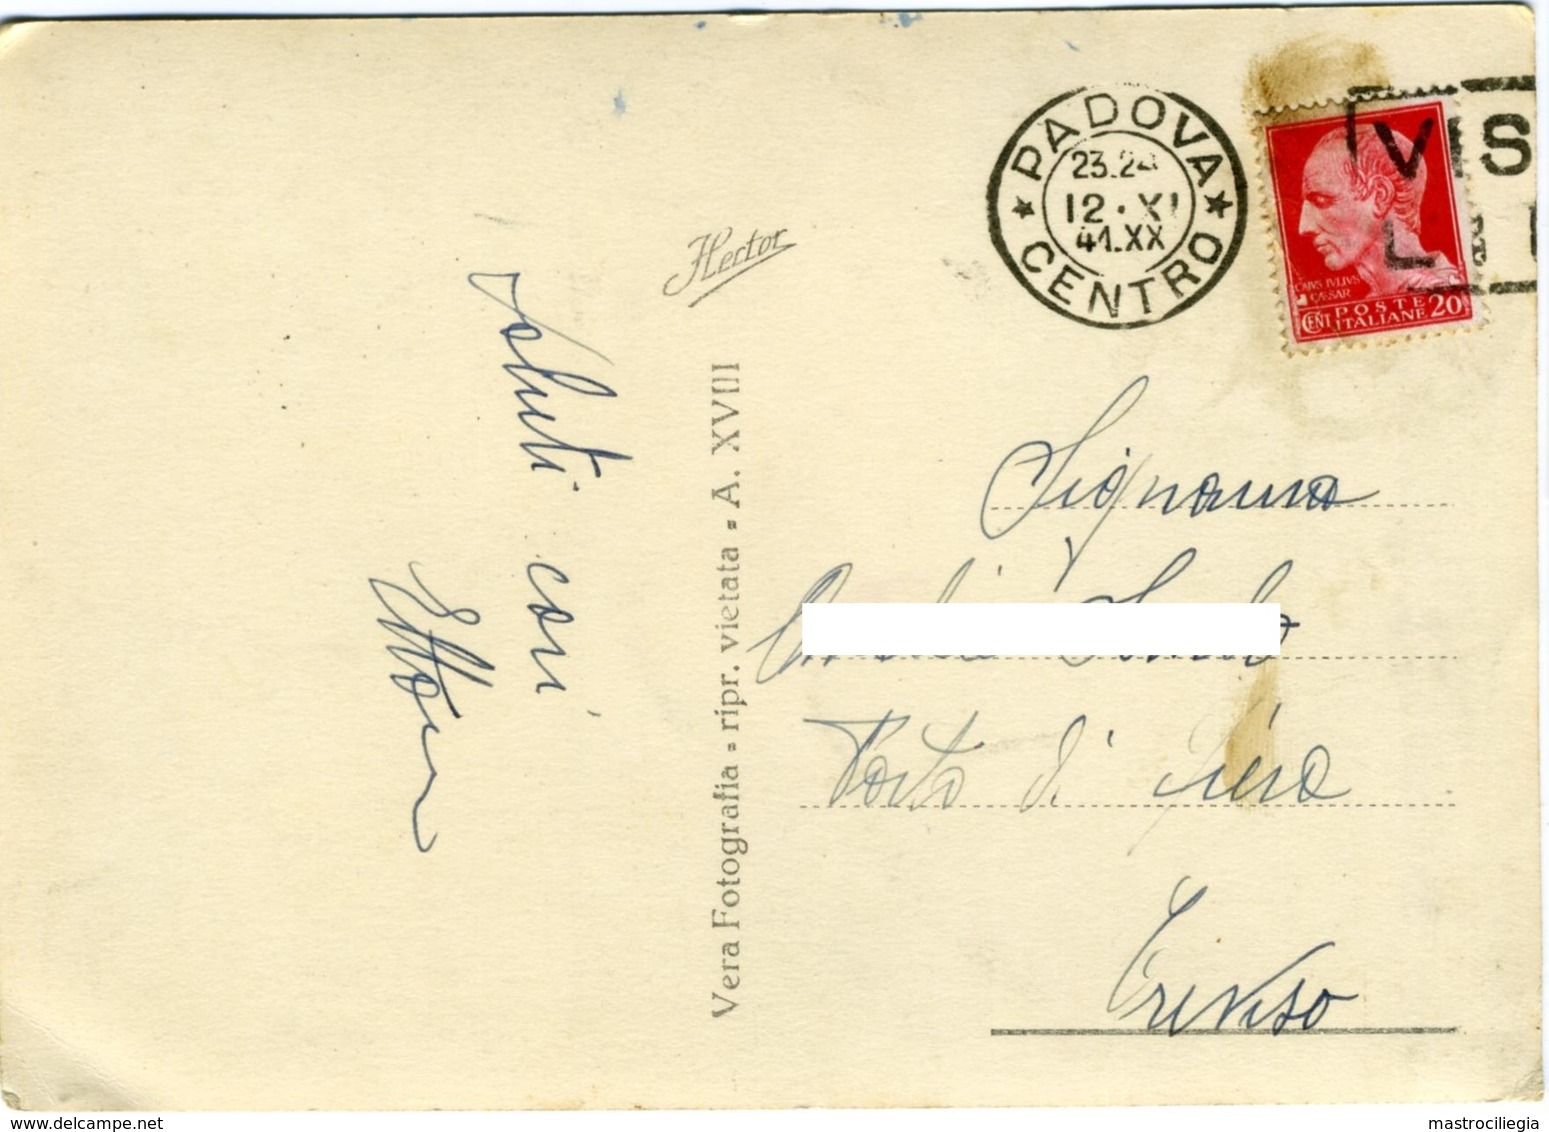 PADOVA
23.24
12.XI
41.XX
CENTRO
VIS
CAIVS IVLIVS
CÆSAR
CENT POSTE
ITALIANE 20
Hector
Saluti cari
Ettore
Vera Fotografia = ripr. vietata = A. XVIII
Signorina
Porto di Fiera
Treviso
www.delcampe.net
mastrociliegia